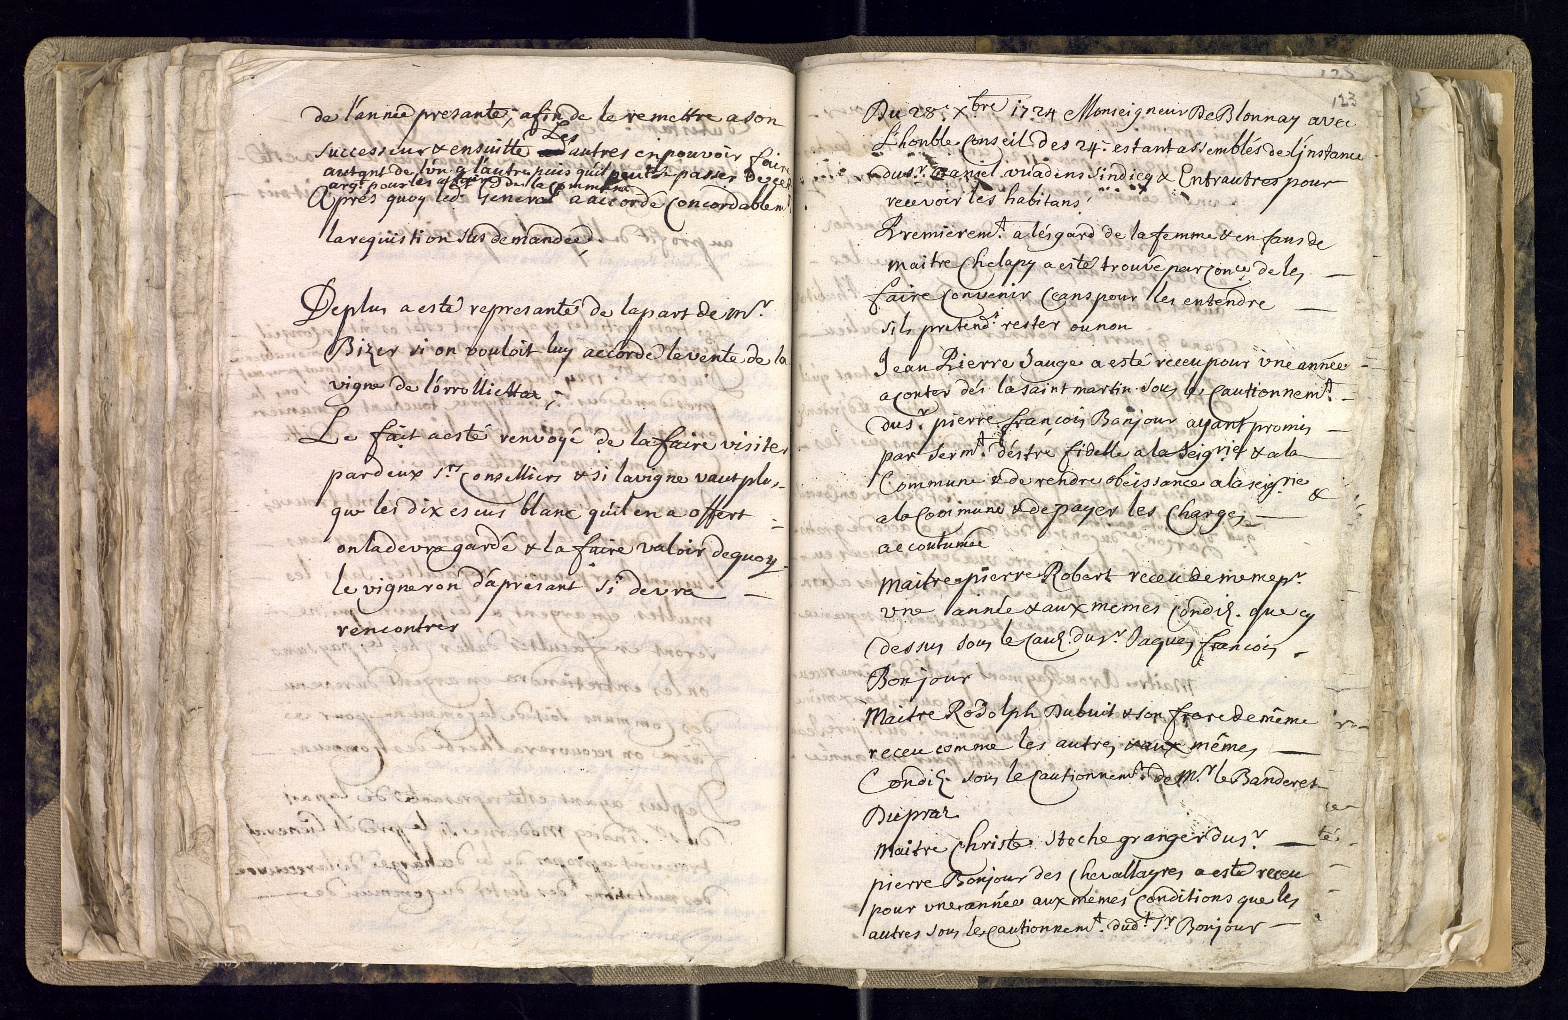 de l'année presante, afin de le remettre a son
Les
successeur & ensuitte autres en pouvoir faire
autant de l'un a l'autre puis qu'il peut se passer de cet
arg.t pour les affaires de la Commune
Apres quoy led.t General a accordé Concordablem.t
la requisition sus demandée.
De plus a esté representé de la part de m.r
Bizer si on vouloit luy accordé le vente de la
vigne de l'orrolliettaz ;
Le fait a esté renvoyé de la faire visiter
par deux s.rs Conselliers & si la vigne vaut plus
que les dix escus blanc qu'il en a offert
on la devra gardé & la faire valoir de quoy
le vigneron d'apresant si devra
rencontrer
123
Du 28.e X.bre 1724 Monseigneur De Blonnay avec
L'honble Conseil des 24. estant assemblés de l'instance
du s.r Dansel vuadens sindicq & Entrautres pour
recevoir les habitans.
Premierem.t a l'esgard de la femme & enfans de
maitre Chelapy a esté trouvé par Con.ce de les
faire Convenir Ceans pour les entendre
sils pretend.t rester ou non
Jean Pierre Sauge a esté receu pour une année
a conter dés la saint martin sous le Cautionnem.t
du s.r pierre françois Bonjour ayant promis
par serm.t déstré fidelle a la Seigrie & a la
Commune & de rendre obeissance a la seigrie &
a la Commune & de payer les Charges
accoutumée
Maitre pierre Robert receu de meme p.r
une année & aux mêmes Condi. que cy
dessus sous le Cau. du s.r Jaques françois
Bonjour
Maitre Rodolph Dubuit & son frere de même
receu comme les autres & aux mêmes
Condi. sous le Cautionnem.t de M.r le Banderet
Dupraz
Maitre Christe Steche granger du s.r
pierre Bonjour des Chevallayres a esté receu
pour une année aux mêmes Conditions que les
autres sous le Cautionnem.t dud.t s.r Bonjour